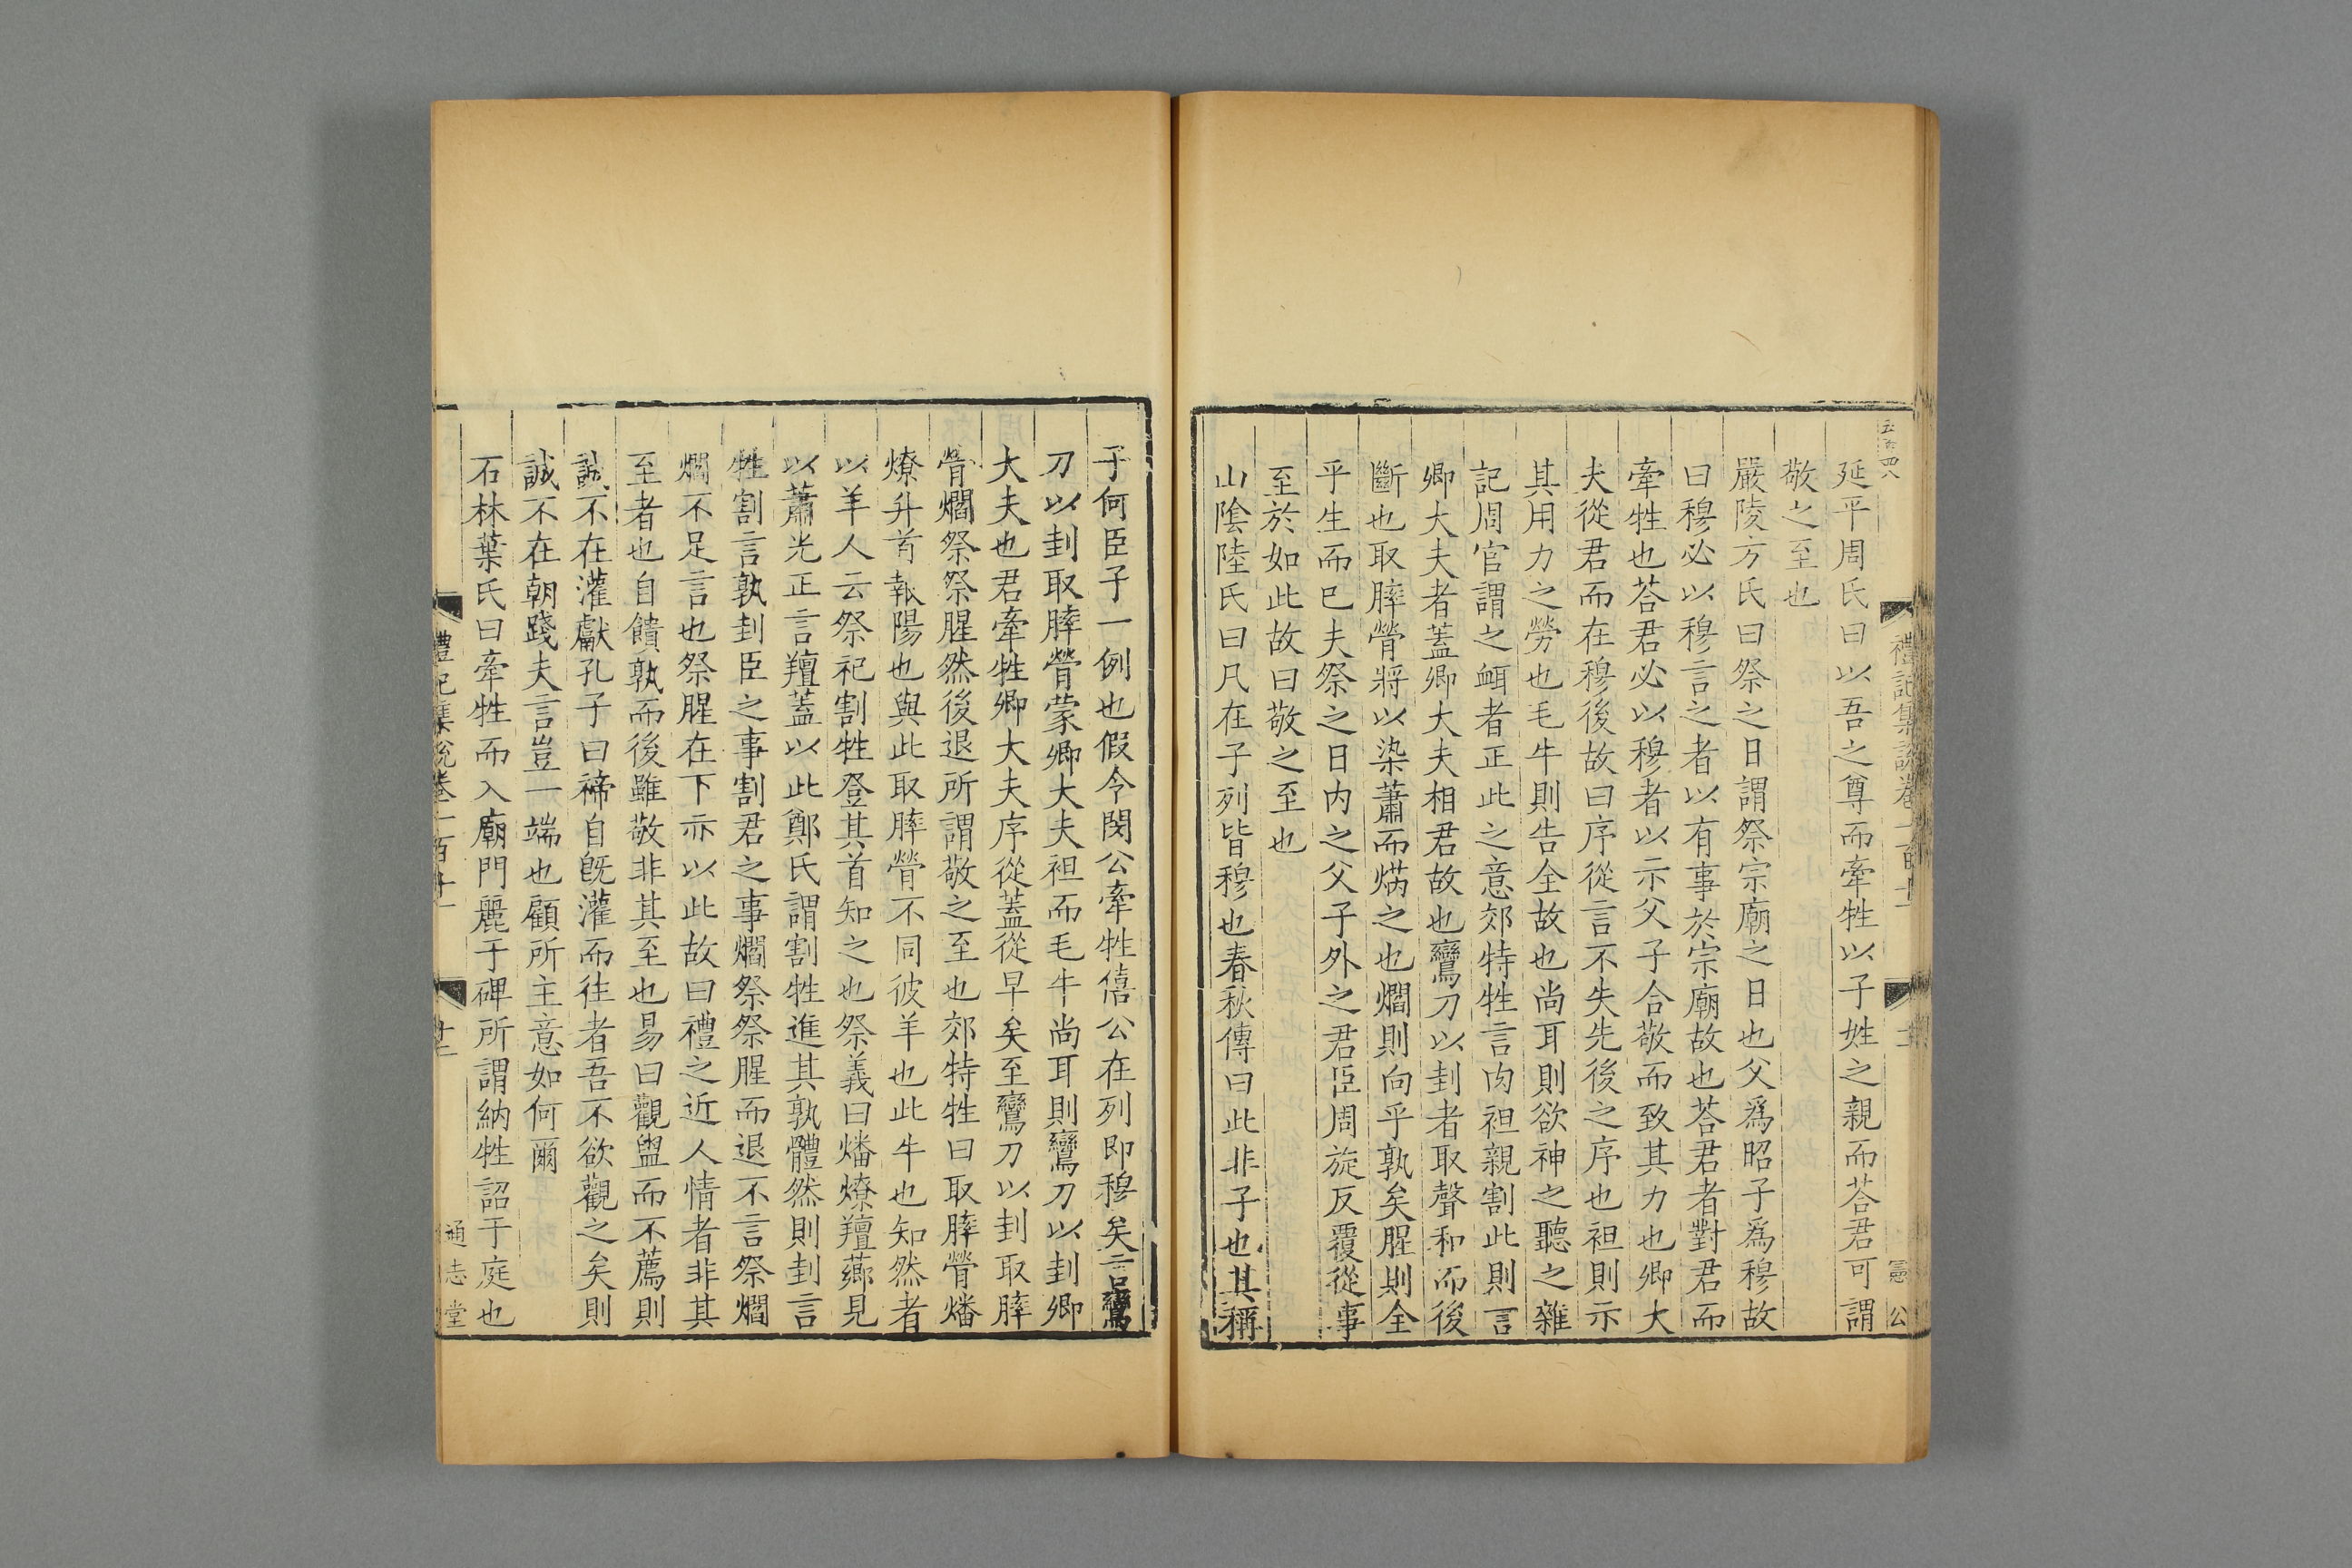 五百四八
禮記集說卷一百十一
十一
憲 公
延平周氏曰以吾之尊而牽牲以子姓之親而荅君可謂
敬之至也
嚴陵方氏曰祭之日謂祭宗廟之日也父爲昭子爲穆故
曰穆必以穆言之者以有事於宗廟故也荅君者對君而
牽牲也荅君必以穆者以示父子合敬而致其力也卿大
夫從君而在穆後故曰序從言不失先後之序也袒則示
其用力之勞也毛牛則告全故也尚耳則欲神之聽之雜
記周官謂之衈者正此之意郊特牲言肉袒親割此則言
卿大夫者蓋卿大夫相君故也鸞刀以刲者取聲和而後
斷也取膟膋將以染蕭而焫之也爓則向乎孰矣腥則全
乎生而已夫祭之日内之父子外之君臣周旋反覆從事
至於如此故曰敬之至也
山陰陸氏曰凡在子列皆穆也春秋傳曰此非子也其稱
子何臣子一例也假令閔公牽牲僖公在列即穆矣言鸞
刀以刲取膟膋蒙卿大夫袒而毛牛尚耳則鸞刀以刲卿
大夫也君牽牲卿大夫序從蓋從早矣至鸞刀以刲取膟
膋爓祭祭腥然後退所謂敬之至也郊特牲曰取膟膋燔
燎升首報陽也與此取膟膋不同彼羊也此牛也知然者
以羊人云祭祀割牲登其首知之也祭義曰燔燎羶薌見
以蕭光正言羶蓋以此鄭氏謂割牲進其孰體然則刲言
牲割言孰刲臣之事割君之事爓祭祭腥而退不言祭爓
爓不足言也祭腥在下亦以此故曰禮之近人情者非其
至者也自饋孰而後雖敬非其至也易曰觀盥而不薦則
誠不在灌獻孔子曰禘自旣灌而往者吾不欲觀之矣則
誠不在朝踐夫言豈一端也顧所主意如何爾
石林葉氏曰牽牲而入廟門麗于碑所謂納牲詔于庭也
禮記集說卷一百十一
十二
通志堂